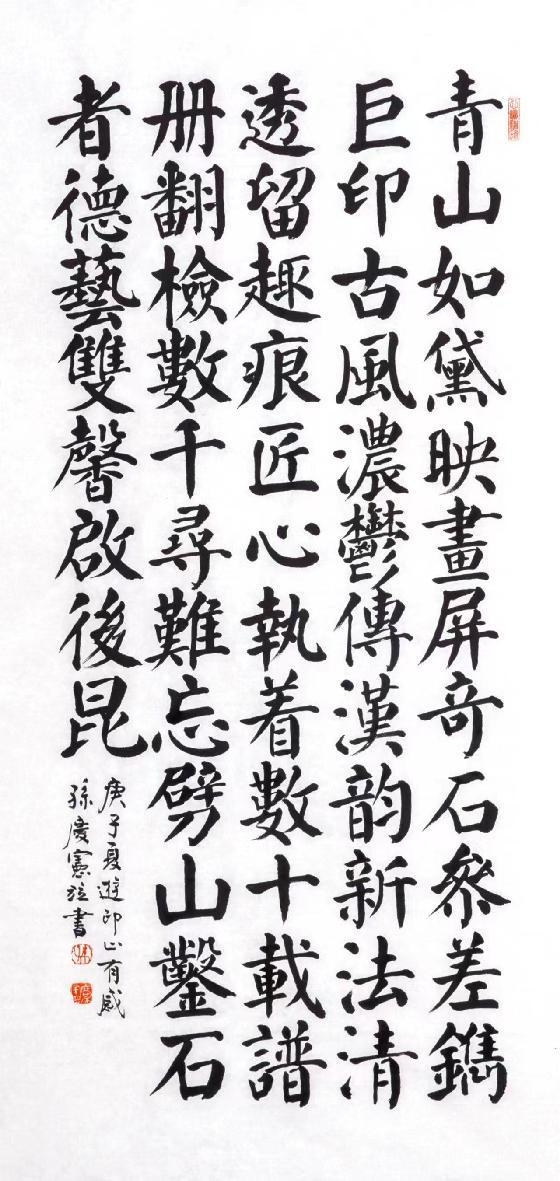 青山如黛映畫屏奇石參差鐫
巨印古風濃鬱傳漢韵新法清
透留趣痕匠心執着數十載譜
册翻檢數千尋難忘劈山鑿石
者德藝雙馨啟後昆
庚子夏遊印山有感
孫慶憲并書